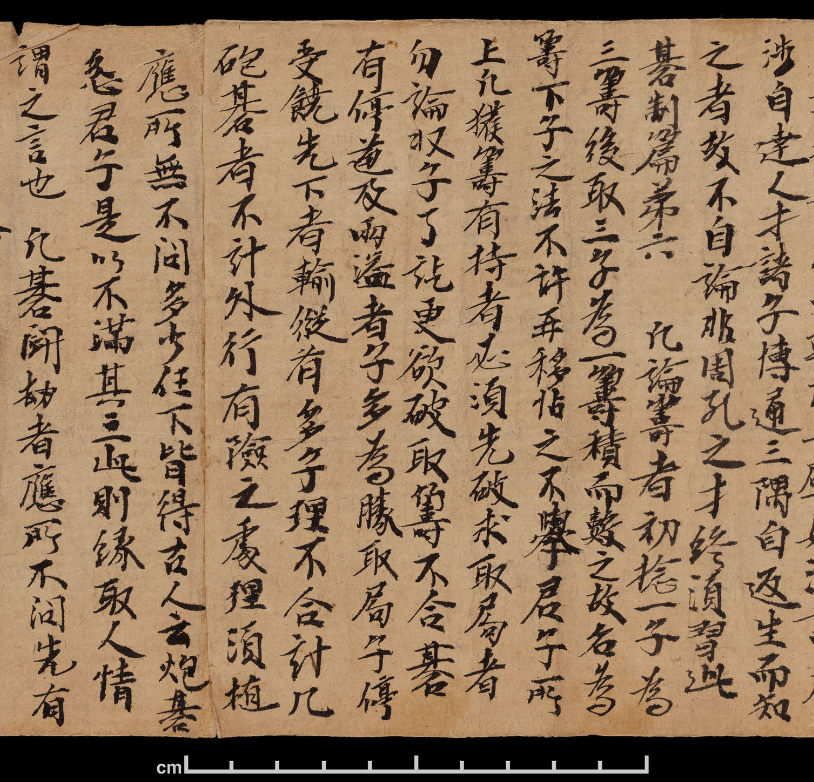 涉自達人才諸子博通三隅自返生而知
之者故不自論非周孔之才終須習此
碁制篇第六 凡論籌者初捻一子為
三籌後取三子為一籌積而數之故名為
籌下子之法不許再移怗之不舉君子所
上凡獲籌有持者必須先破求取局者
勿論収子了訖更欲破取籌不合碁
有停道及兩溢者子多為勝取局子停
受饒先下者輸縱有多子理不合計凡
砲碁者不計外行有險之處理須植
應所無不問多少任下皆得古人云炮碁
忿君子是以不滿其三此則緣取人情
謂之言也 凡碁鬪劫者應所不問先有